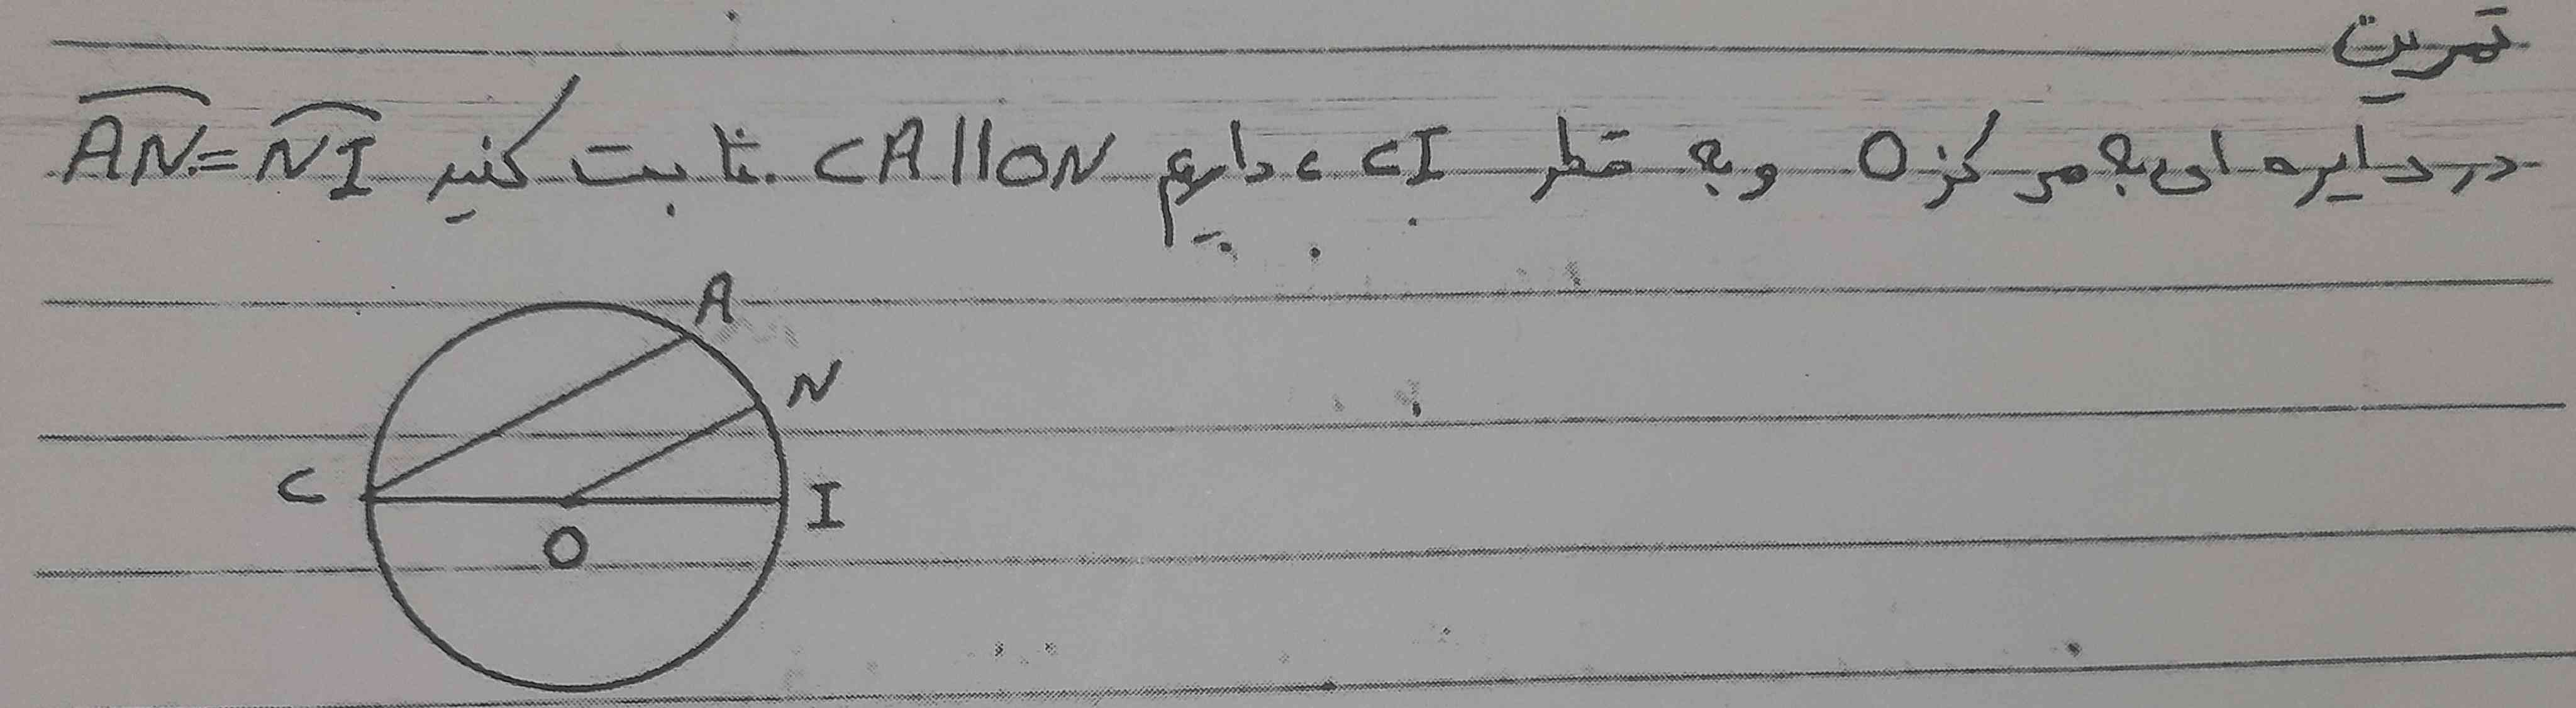 تمرین
در دایره ای به مرکز O و به قطر CI ، داریم CA||ON . ثابت کنید AN͡ = NI͡
A
N
C
I
O